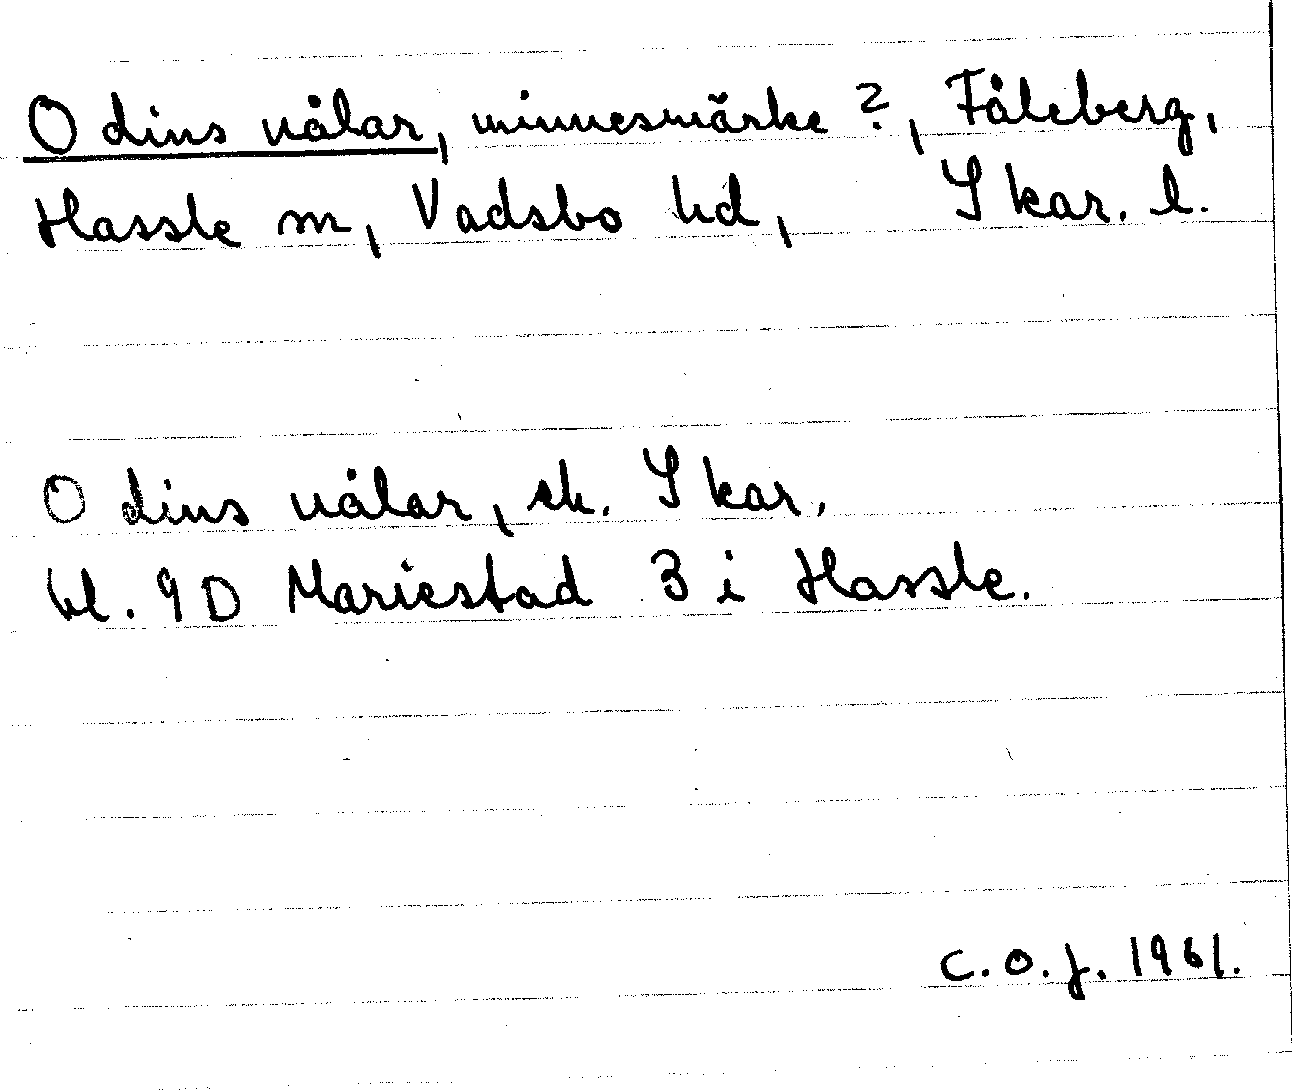 Odins nålar, minnesmärke?, Fåleberg,
Hassle sn, Vadsbo hd, Skar. l.
Odins nålar, ek. Skar.
bl. 9D Mariestad 3 i Hassle.
C.O.J. 1961.